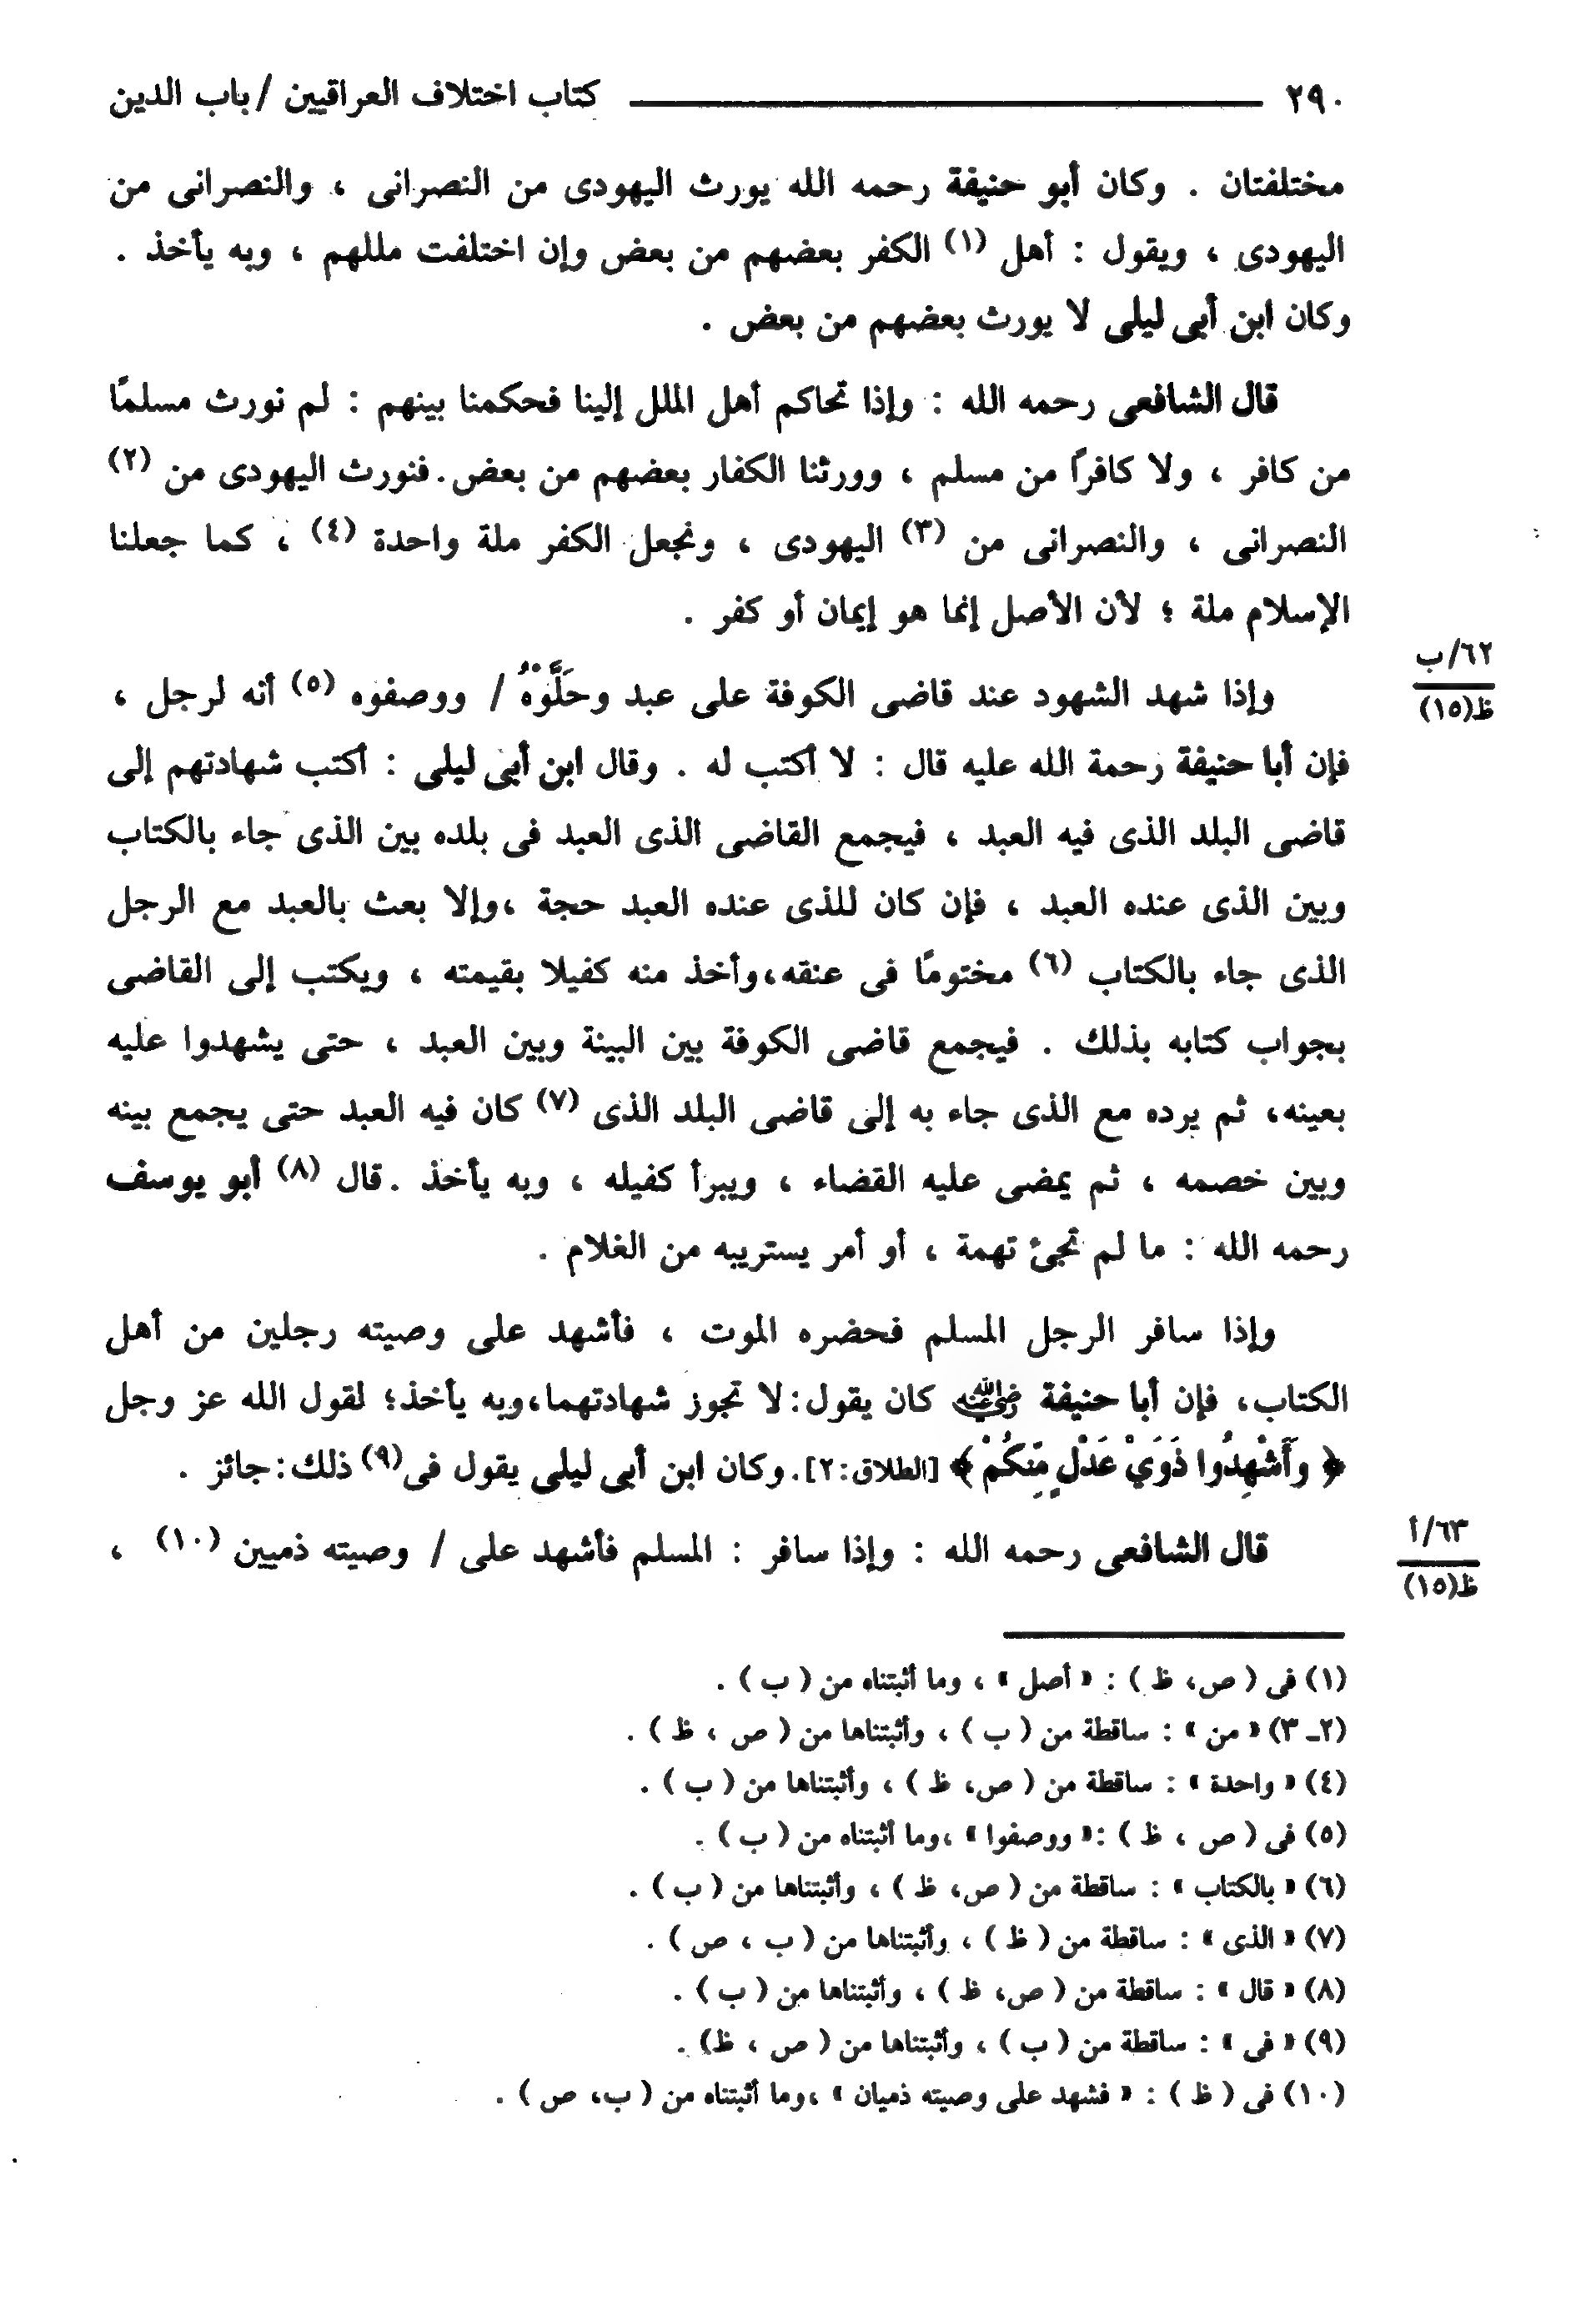 ٢٩٠ كتاب اختلاف العراقيين / باب الدين
مختلفتان . وكان أبو حنيفة رحمه الله يورث اليهودى من النصرانى ، والنصرانى من
اليهودى ، ويقول : أهل (١) الكفر بعضهم من بعض وإن اختلفت مللهم ، وبه يأخذ .
وكان ابن أبى ليلى لا يورث بعضهم من بعض .
قال الشافعى رحمه الله : وإذا تحاكم أهل الملل إلينا فحكمنا بينهم : لم نورث مسلمًا
من كافر ، ولا كافرًا من مسلم ، وورثنا الكفار بعضهم من بعض. فنورث اليهودى من (٢)
النصرانى ، والنصرانى من (٣) اليهودى ، ونجعل الكفر ملة واحدة (٤) ، كما جعلنا
الإسلام ملة ؛ لأن الأصل إنما هو إيمان أو كفر .
٦٢/ب
ظ(١٥)
وإذا شهد الشهود عند قاضى الكوفة على عبد وحَلَّوْهُ / ووصفوه (٥) أنه لرجل ،
فإن أبا حنيفة رحمة الله عليه قال : لا أكتب له . وقال ابن أبى ليلى : أكتب شهادتهم إلى
قاضى البلد الذى فيه العبد ، فيجمع القاضى الذى العبد فى بلده بين الذى جاء بالكتاب
وبين الذى عنده العبد ، فإن كان للذى عنده العبد حجة ،وإلا بعث بالعبد مع الرجل
الذى جاء بالكتاب (٦) مختومًا فى عنقه،وأخذ منه كفيلا بقيمته ، ويكتب إلى القاضى
بجواب كتابه بذلك . فيجمع قاضى الكوفة بين البينة وبين العبد ، حتى يشهدوا عليه
بعينه، ثم يرده مع الذى جاء به إلى قاضى البلد الذى (٧) كان فيه العبد حتى يجمع بينه
وبين خصمه ، ثم يمضى عليه القضاء ، ويبرأ كفيله ، وبه يأخذ .قال (٨) أبو يوسف
رحمه الله : ما لم تجئ تهمة ، أو أمر يستريبه من الغلام .
وإذا سافر الرجل المسلم فحضره الموت ، فأشهد على وصيته رجلين من أهل
الكتاب، فإن أبا حنيفة رضي الله عنه كان يقول: لا تجوز شهادتهما،وبه يأخذ؛ لقول الله عز وجل
﴿ وَأَشْهِدُوا ذَوَيْ عَدْلٍ مِّنكُمْ ﴾ [الطلاق:٢]. وكان ابن أبى ليلى يقول فى(٩) ذلك: جائز .
قال الشافعى رحمه الله : وإذا سافر : المسلم فأشهد على / وصيته ذميين (١٠) ،
٦٣/أ
ظ(١٥)
(١) فى ( ص، ظ ) : « أصل » ، وما أثبتناه من ( ب ) .
(٢ـ ٣) « من » : ساقطة من ( ب ) ، وأثبتناها من ( ص ، ظ ) .
(٤) « واحدة » : ساقطة من ( ص، ظ ) ، وأثبتناها من ( ب ) .
(٥) فى ( ص ، ظ ) :« ووصفوا » ،وما أثبتناه من ( ب ) .
(٦) « بالكتاب » : ساقطة من ( ص، ظ ) ، وأثبتناها من ( ب ) .
(٧) « الذى » : ساقطة من ( ظ ) ، وأثبتناها من ( ب ، ص ) .
(٨) « قال » : ساقطة من ( ص، ظ ) ، وأثبتناها من ( ب ) .
(٩) « فى » : ساقطة من ( ب ) ، وأثبتناها من ( ص ، ظ) .
(١٠) فى ( ظ ) : « فشهد على وصيته ذميان » ،وما أثبتناه من ( ب، ص ) .